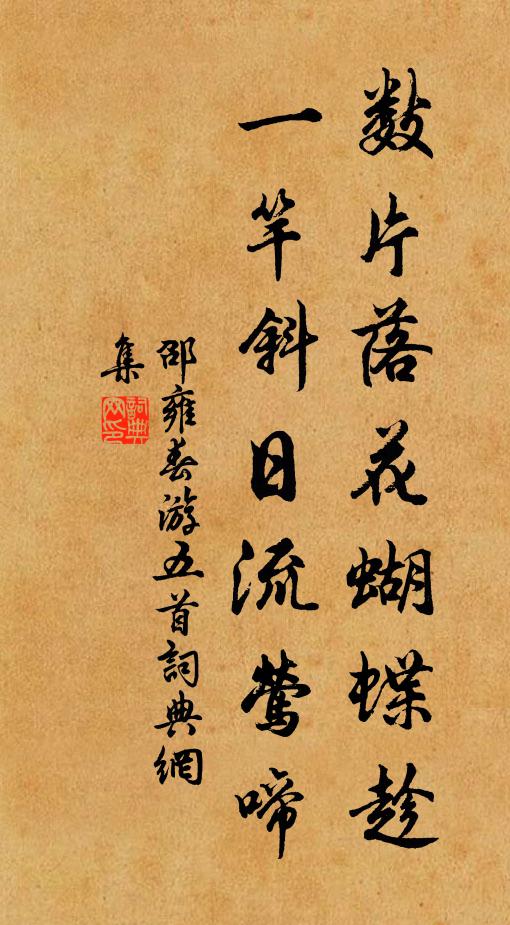 數片落花蝴蝶趁
一竿斜日流莺啼
邵雍春游五首詞典網
集
詞典網印